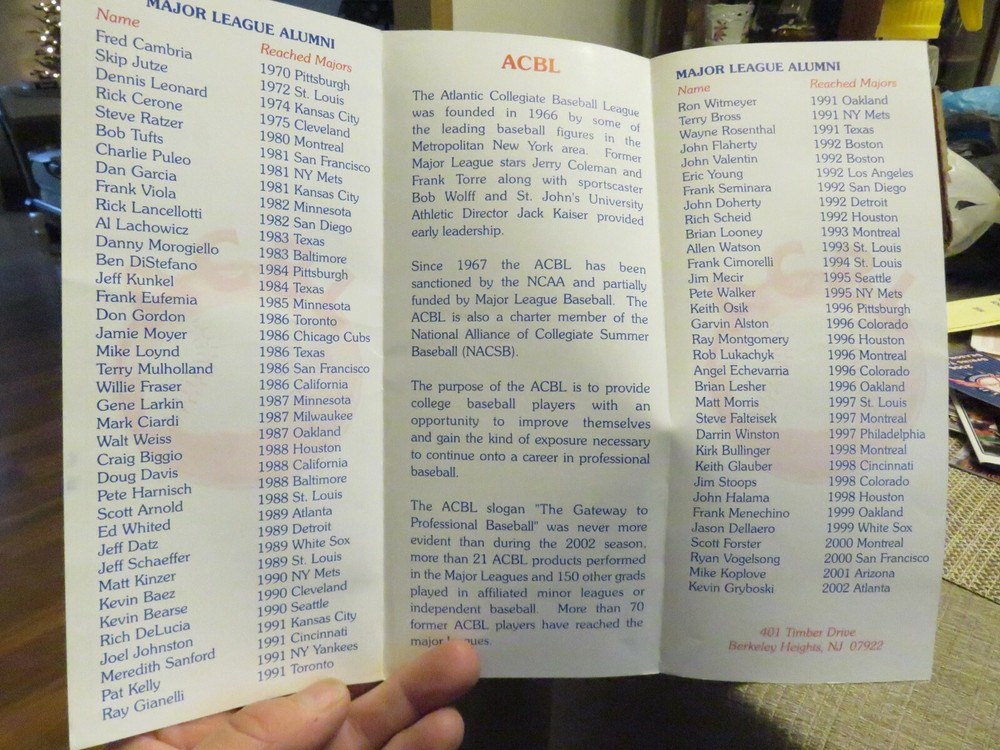 MAJOR LEAGUE ALUMNI
Name Reached Majors
Fred Cambria 1970 Pittsburgh
Skip Jutze 1972 St. Louis
Dennis Leonard 1974 Kansas City
Rick Cerone 1975 Cleveland
Steve Ratzer 1980 Montreal
Bob Tufts 1981 San Francisco
Charlie Puleo 1981 NY Mets
Dan Garcia 1981 Kansas City
Frank Viola 1982 Minnesota
Rick Lancellotti 1982 San Diego
Al Lachowicz 1983 Texas
Danny Morogiello 1983 Baltimore
Ben DiStefano 1984 Pittsburgh
Jeff Kunkel 1984 Texas
Frank Eufemia 1985 Minnesota
Don Gordon 1986 Toronto
Jamie Moyer 1986 Chicago Cubs
Mike Loynd 1986 Texas
Terry Mulholland 1986 San Francisco
Willie Fraser 1986 California
Gene Larkin 1987 Minnesota
Mark Ciardi 1987 Milwaukee
Walt Weiss 1987 Oakland
Craig Biggio 1988 Houston
Doug Davis 1988 California
Pete Harnisch 1988 Baltimore
Scott Arnold 1988 St. Louis
Ed Whited 1989 Atlanta
Jeff Datz 1989 Detroit
Jeff Schaeffer 1989 White Sox
Matt Kinzer 1989 St. Louis
Kevin Baez 1990 NY Mets
Kevin Bearse 1990 Cleveland
Rich DeLucia 1990 Seattle
Joel Johnston 1991 Kansas City
Meredith Sanford 1991 Cincinnati
Pat Kelly 1991 NY Yankees
Ray Gianelli 1991 Toronto
ACBL
The Atlantic Collegiate Baseball League
was founded in 1966 by some of
the leading baseball figures in the
Metropolitan New York area. Former
Major League stars Jerry Coleman and
Frank Torre along with sportscaster
Bob Wolff and St. John's University
Athletic Director Jack Kaiser provided
early leadership.
Since 1967 the ACBL has been
sanctioned by the NCAA and partially
funded by Major League Baseball. The
ACBL is also a charter member of the
National Alliance of Collegiate Summer
Baseball (NACSB).
The purpose of the ACBL is to provide
college baseball players with an
opportunity to improve themselves
and gain the kind of exposure necessary
to continue onto a career in professional
baseball.
The ACBL slogan "The Gateway to
Professional Baseball" was never more
evident than during the 2002 season,
more than 21 ACBL products performed
in the Major Leagues and 150 other grads
played in affiliated minor leagues or
independent baseball. More than 70
former ACBL players have reached the
major leagues.
MAJOR LEAGUE ALUMNI
Name Reached Majors
Ron Witmeyer 1991 Oakland
Terry Bross 1991 NY Mets
Wayne Rosenthal 1991 Texas
John Flaherty 1992 Boston
John Valentin 1992 Boston
Eric Young 1992 Los Angeles
Frank Seminara 1992 San Diego
John Doherty 1992 Detroit
Rich Scheid 1992 Houston
Brian Looney 1993 Montreal
Allen Watson 1993 St. Louis
Frank Cimorelli 1994 St. Louis
Jim Mecir 1995 Seattle
Pete Walker 1995 NY Mets
Keith Osik 1996 Pittsburgh
Garvin Alston 1996 Colorado
Ray Montgomery 1996 Houston
Rob Lukachyk 1996 Montreal
Angel Echevarria 1996 Colorado
Brian Lesher 1996 Oakland
Matt Morris 1997 St. Louis
Steve Falteisek 1997 Montreal
Darrin Winston 1997 Philadelphia
Kirk Bullinger 1998 Montreal
Keith Glauber 1998 Cincinnati
Jim Stoops 1998 Colorado
John Halama 1998 Houston
Frank Menechino 1999 Oakland
Jason Dellaero 1999 White Sox
Scott Forster 2000 Montreal
Ryan Vogelsong 2000 San Francisco
Mike Koplove 2001 Arizona
Kevin Gryboski 2002 Atlanta
401 Timber Drive
Berkeley Heights, NJ 07922